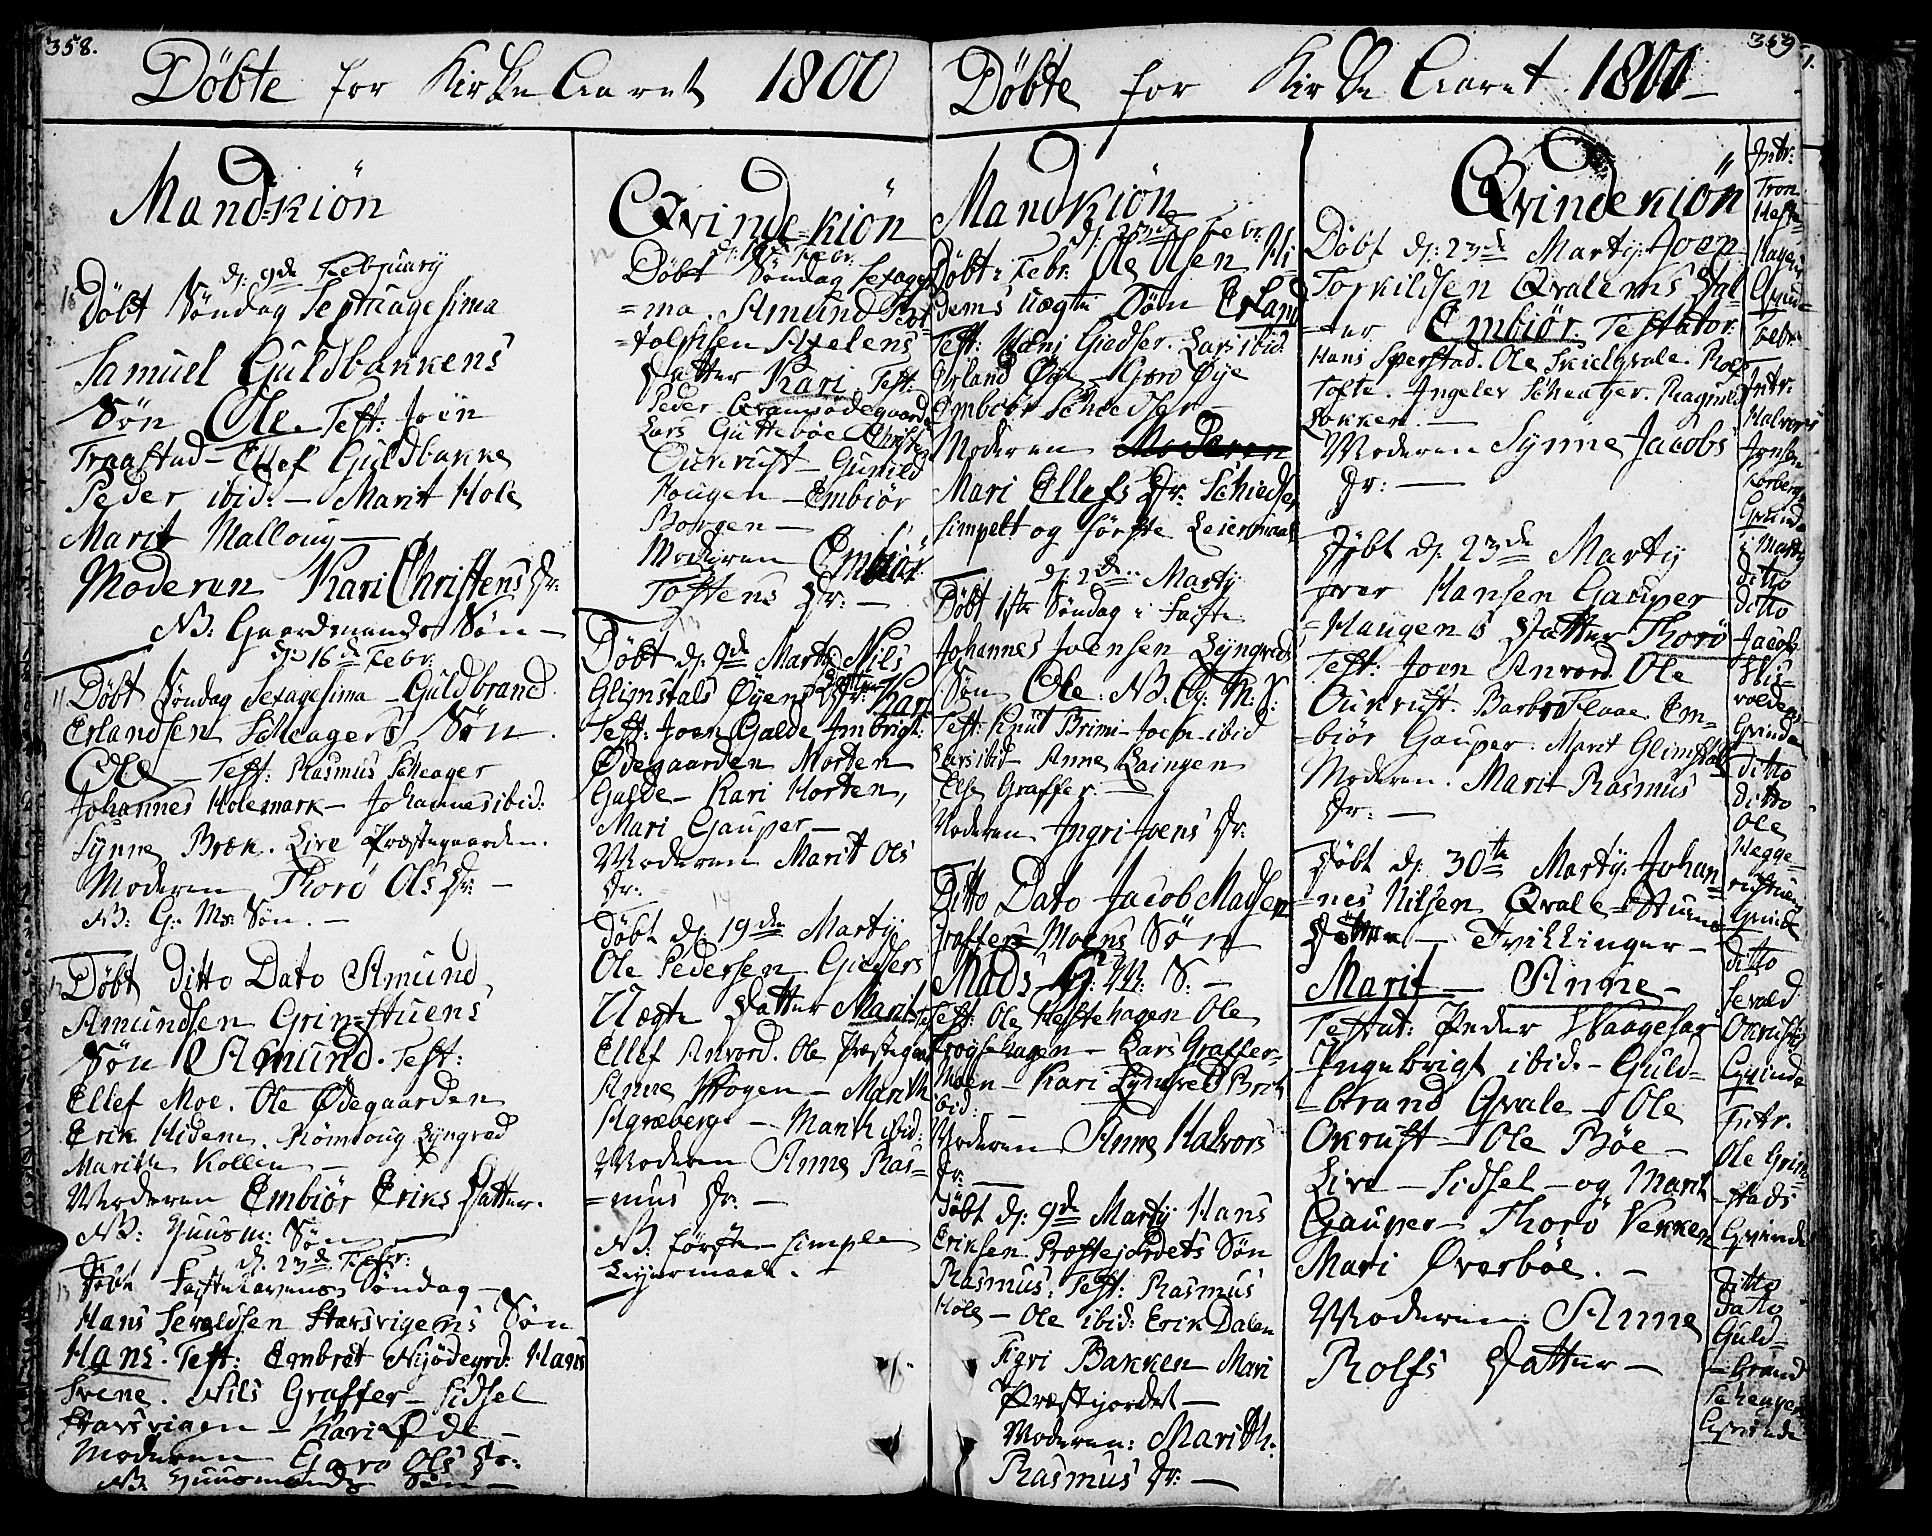 358.
Döbte for Kirke Aaret 1800
Mandkiön
dj: 9de February
Döbt Söndag Septuagesima
Samuel Guldbakkens
Sön Ole. Test: Joen
Traastad - Ellef Guldbakke
Peder ibid: - Marit Hole
Marit Malloug
Moderen Kari Christens Dr:
NB: Gaardmands Sön -
dj: 16de Febr:
11 Döbt Söndag Sexagesima - Guldbrand
Erlandsen Scheagers Sön.
Ole - Test: Rasmus Scheager
Johannes Holemark - Johannes ibid:
Synne Bræk. Live Præstegaarden.
Moderen Thorö Ols Dr: -
NB: G: M: Sön. -
Döbt ditto Dato Amund
Amundsen Grin=stuens
Sön Amund. Test:
Ellef Moe. Ole Ödegaarden
Erik Hidem. Römmoug Lyngved
Marithe Kollen -
Moderen Embiör Eriks Datter.
NB: Huusm: Sön
dj: 23de Febr:
13 Döbt Fastelavens Söndag -
Hans Sevaldsen Harsvigens Sön
Hans. Test: Embret Nyödegrd: Hans
Svene. Nils Graffer - Sidsel
Harsvigen - Kari Öde -
Moderen Guro Ols Dr:
NB: Huusmands Sön -
Qvinde=kiön
dj: 16de Febr:
Döbt Söndag Sexagesi
=ma. Amund Bot-
=tolphsen Axelens
Datter Kari. Test:
Peder Qvamsödegaard
Lars Gutteböe Christen
Oukrust - Gunild
Hougen - Embiör
Borgen -
Moderen Embiör
Tostens Dr: -
Döbt dj: 9de Marty Nils
Glimsdals Öyens Datter Kari
Test: Joen Galde Imbrigt
Ödegaarden Morten
Galde - Kari Horten,
Mari Gauper -
Moderen Marit Ols
Dr:
14
Döbt dj: 19de Marty
Ole Pedersen Giedsers
Uægte Datter Marit Test
Ellef Anvord. Ole Præstegaard
Anne Skogen - Marith
Agneberg - Marith ibid:
Moderen Anne Ras=
=mus Dr: -
NB: förste - simple
Leyermaal.
359
Döbte for Kirke Aaret 1800
Mandkiön
dj: 23de Febr:
Döbt: Febr: Ole Olsen Hi=
dems uægte Sön Erland
Test: Hans Giedser. Lars ibid:
Erland Öye - Goro Öye
Embiör Schiedser -
Moderen Moderen
Mari Ellefs Dr: Schiedser
simpelt og förste Leiermaal
dj: 2den Marty
Döbt 1ste Söndag i Faste
Johannes Joensen Lyngveds
Sön Ole. NB. G: M: S:
Test: Knut Brimi - Joen ibid
Lars ibid - Anne Laingen
Else Graffer. -
Moderen Ingri Joens Dr:
Ditto Dato Jacob Madsen
Graffers Moens Sön
Mads G: M: S: -
Test: Ole Hestehagen Ole
Troysehagen - Lars Graffer=
Moen - Kari Lyngved Brit
ibid: -
Moderen Anne Halvors
Dr: -
Döbt dj: 9de Marty Hans
Eriksen Præstejordets Sön
Rasmus. Test: Rasmus
Hole - Ole ibid: Erik Dalen
Sigri Bakken Mari
Præstjordet -
Moderen: Marith
Rasmus Dr: -
Qvindekiön
Döbt dj: 23de Marty: Joen
Torkildsen Qvalems Dat=
=ter Embiör. Testator:
Hans Sperstad. Ole Skielqvale. Rolf
Tofte. Ingelev Scheager. Ragnild
Lokken. -
Moderen Synne Jacobs
Dr: -
Döbt dj: 23de Marty
Iver Hansen Gauper
=Haugens Datter Thorö
Test: Joen Anvord Ole
Oukrust. Barbro Flaae. Em=
=biör Gauper. Marit Glimsdal
Moderen. Marit Rasmus
Dr: -
Döbt dj: 30te Marty. Johan=
=nes Nilsen Qvale=Stuens
Döttre - Tvillinger -
Marit - Anne -
Testat: Peder Waagesar
Ingebrigt ibid - Guld=
=brand Qvale - Ole
Okrust - Ole Böe -
Live - Sidsel - og Marit
Gauper - Thorö Vekken
Mari Överböe. -
Moderen. Anne
Rolfs Datter -
Intr:
Tron
Heste-
Hagens
Qvin=
Febr:
Intr:
Halvor
Jensen
Forberg
Qvinde
i Marty
ditto
ditto
Jacob
voldens
Qvinde
ditto
ditto
Ole
Hegge=
Qvinde
ditto
Sevald
Okrusts
Qvinde
Intr.
Ole Grim
=stads
Qvinde
Ditto
Dato
Guld=
=brand
Scheagers
Qvinde